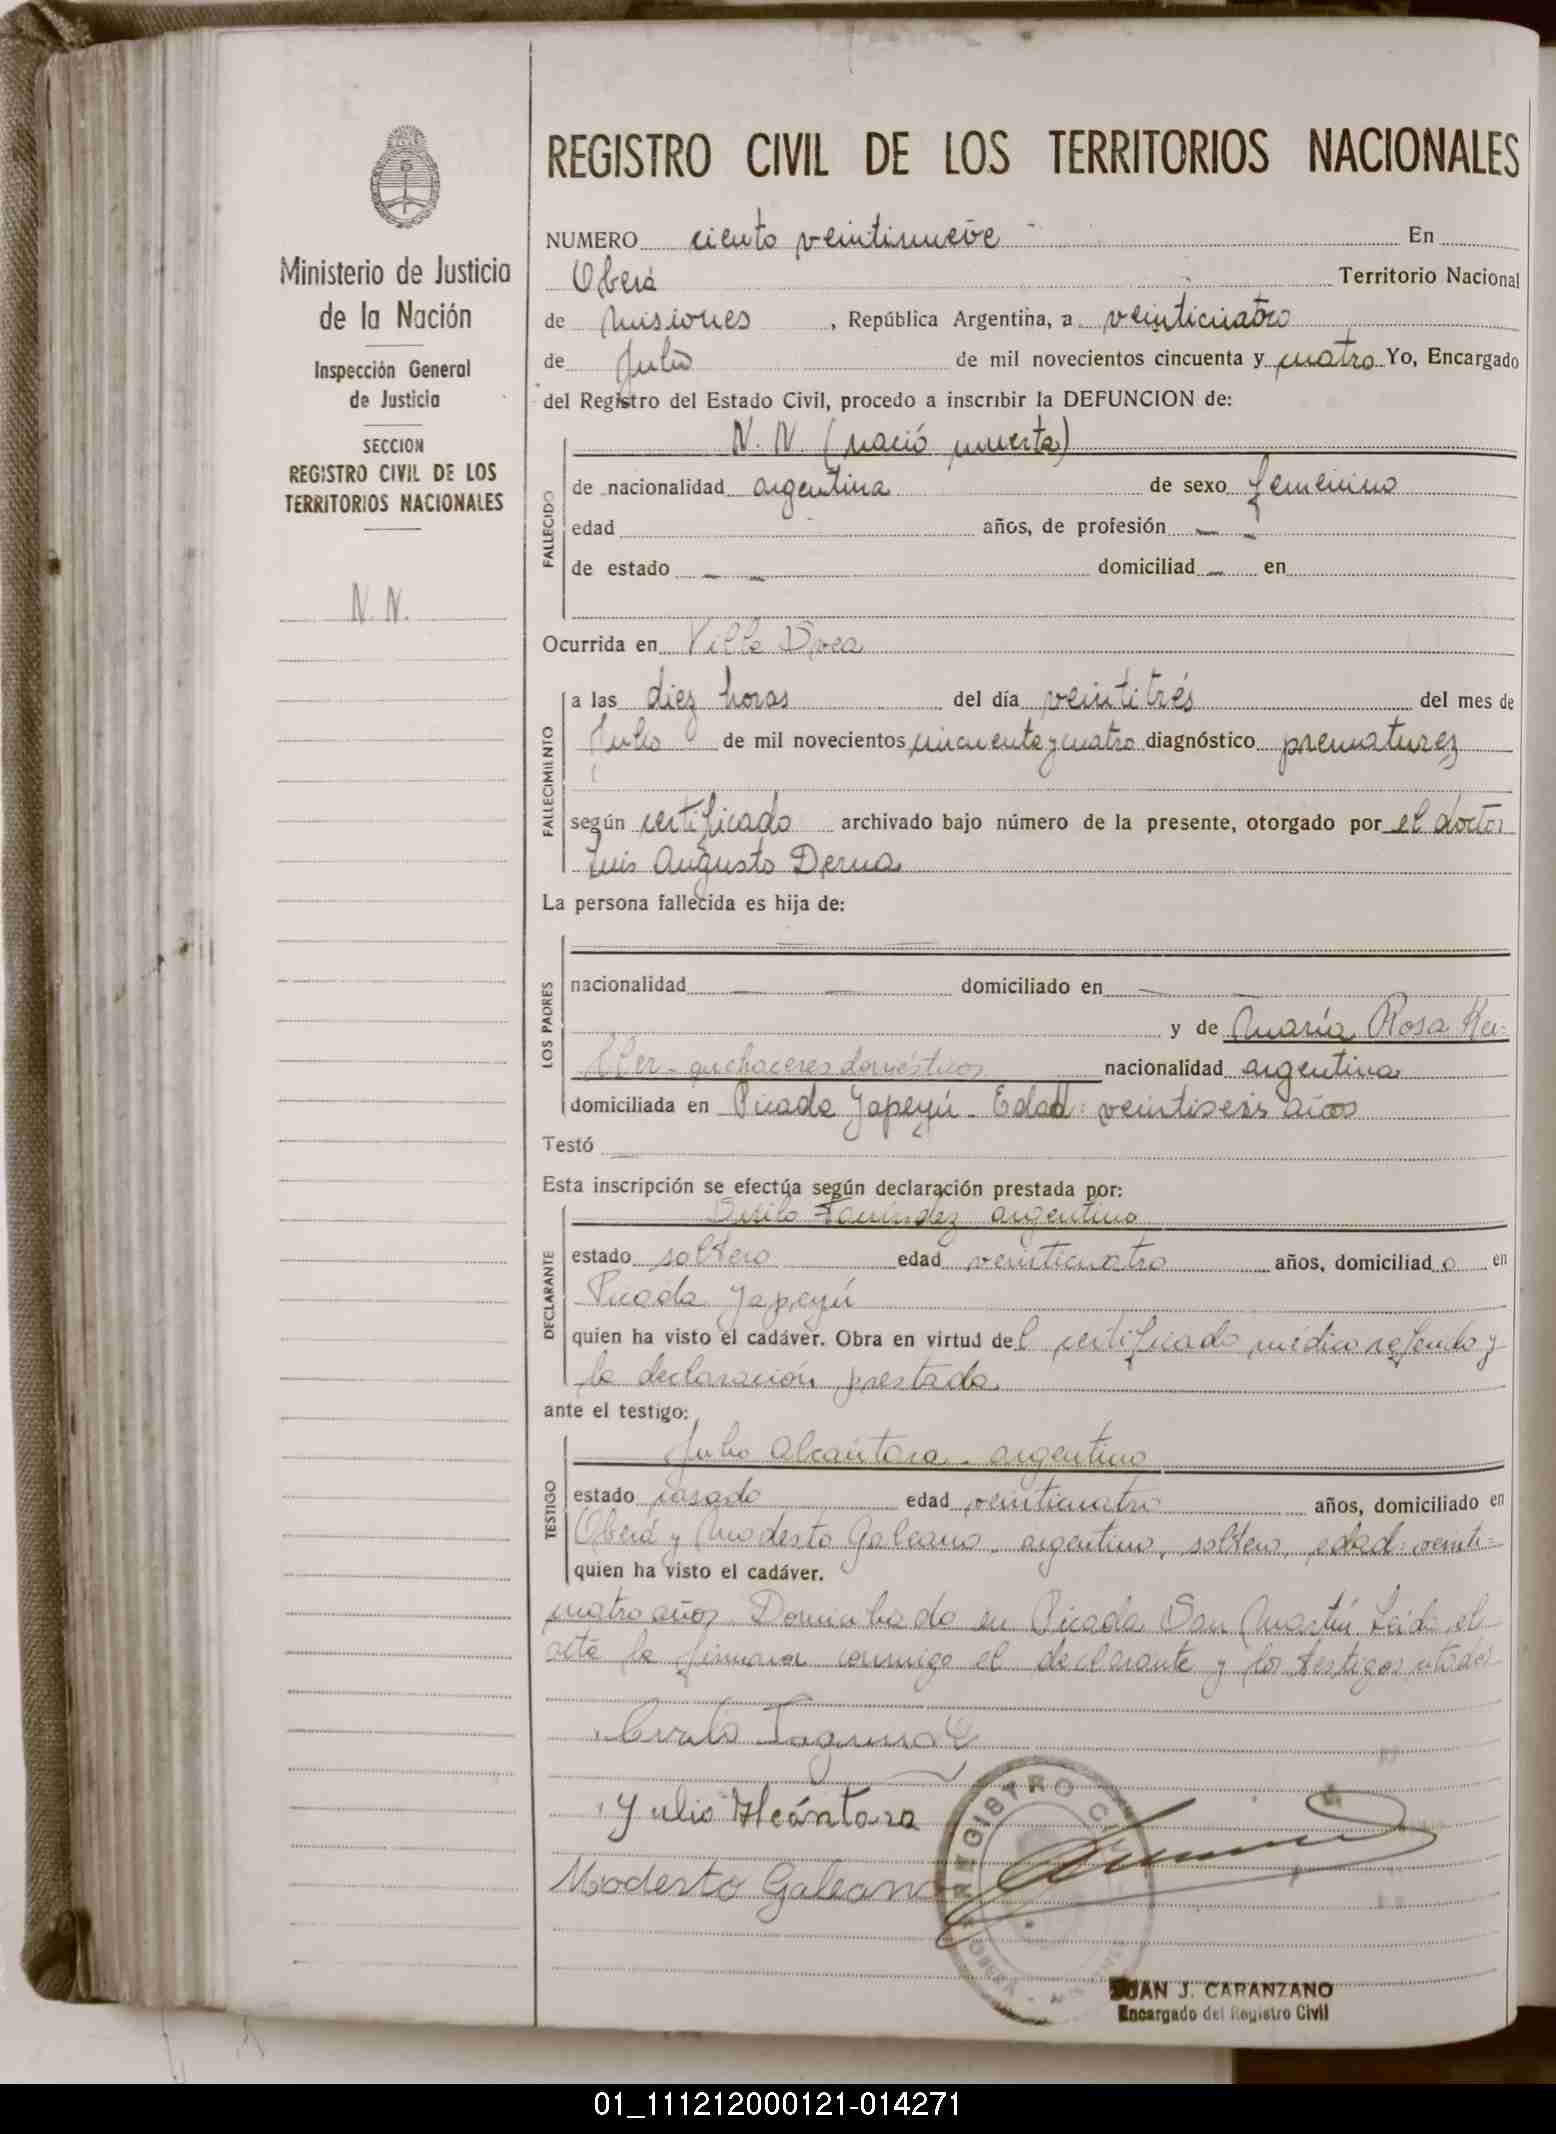 REGISTRO CIVIL DE LOS TERRITORIOS NACIONALES
Ministerio de Justicia
de la Nación
Inspección General
de Justicia
SECCION
REGISTRO CIVIL DE LOS
TERRITORIOS NACIONALES
N. N.
NUMERO ciento veintinueve En
Oberá Territorio Nacional
de Misiones, República Argentina, a veinticuatro
de Julio de mil novecientos cincuenta y cuatro Yo, Encargado
del Registro del Estado Civil, procedo a inscribir la DEFUNCION de:
N. N. (nació muerta)
FALLECIDO
de nacionalidad argentina de sexo femenino
edad años, de profesión —
de estado — — domiciliad — en
Ocurrida en Villa
FALLECIMIENTO
a las diez horas del día veintitrés del mes de
Julio de mil novecientos cincuenta y cuatro diagnóstico prematurez
según certificado archivado bajo número de la presente, otorgado por el doctor
Luis Augusto Derna
La persona fallecida es hija de:
LOS PADRES
nacionalidad — — domiciliado en —
y de María Rosa
quehaceres domésticos nacionalidad argentina
domiciliada en Picada Yapeyú - Edad: veintiseis años
Testó —
Esta inscripción se efectúa según declaración prestada por:
DECLARANTE
argentino
estado soltero edad veinticuatro años, domiciliado en
Picada Yapeyú
quien ha visto el cadáver. Obra en virtud del certificado médico referido y
la declaración prestada
ante el testigo:
TESTIGO
Julio Alcántara - argentino
estado casado edad veinticuatro años, domiciliado en
Oberá y Modesto Galeano, argentino, soltero, edad: veinti=
quien ha visto el cadáver.
cuatro años Domiciliado en Picada San Martín Leída el
acta la firman conmigo el declarante y los testigos citados
Yulio Alcántara
Modesto Galeano
REGISTRO CIVIL
JUAN J. CARANZANO
Encargado del Registro Civil
01_111212000121-014271